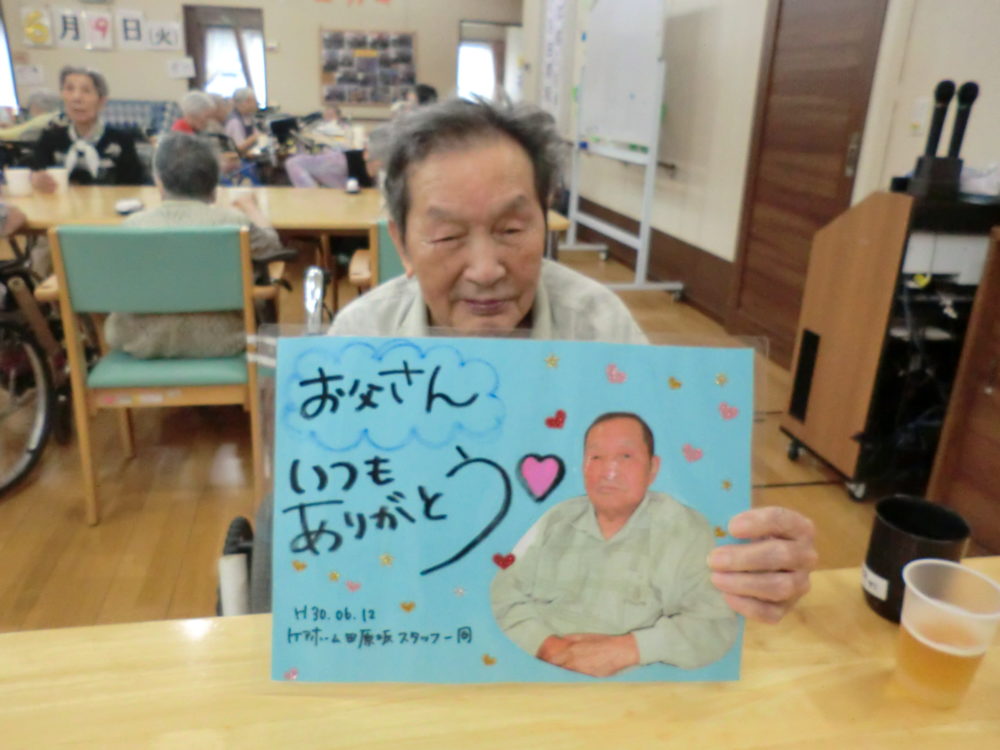 6月9日(火)
お父さん
いつも
ありがとう
H30.06.12
ケアホーム田原坂スタッフ一同